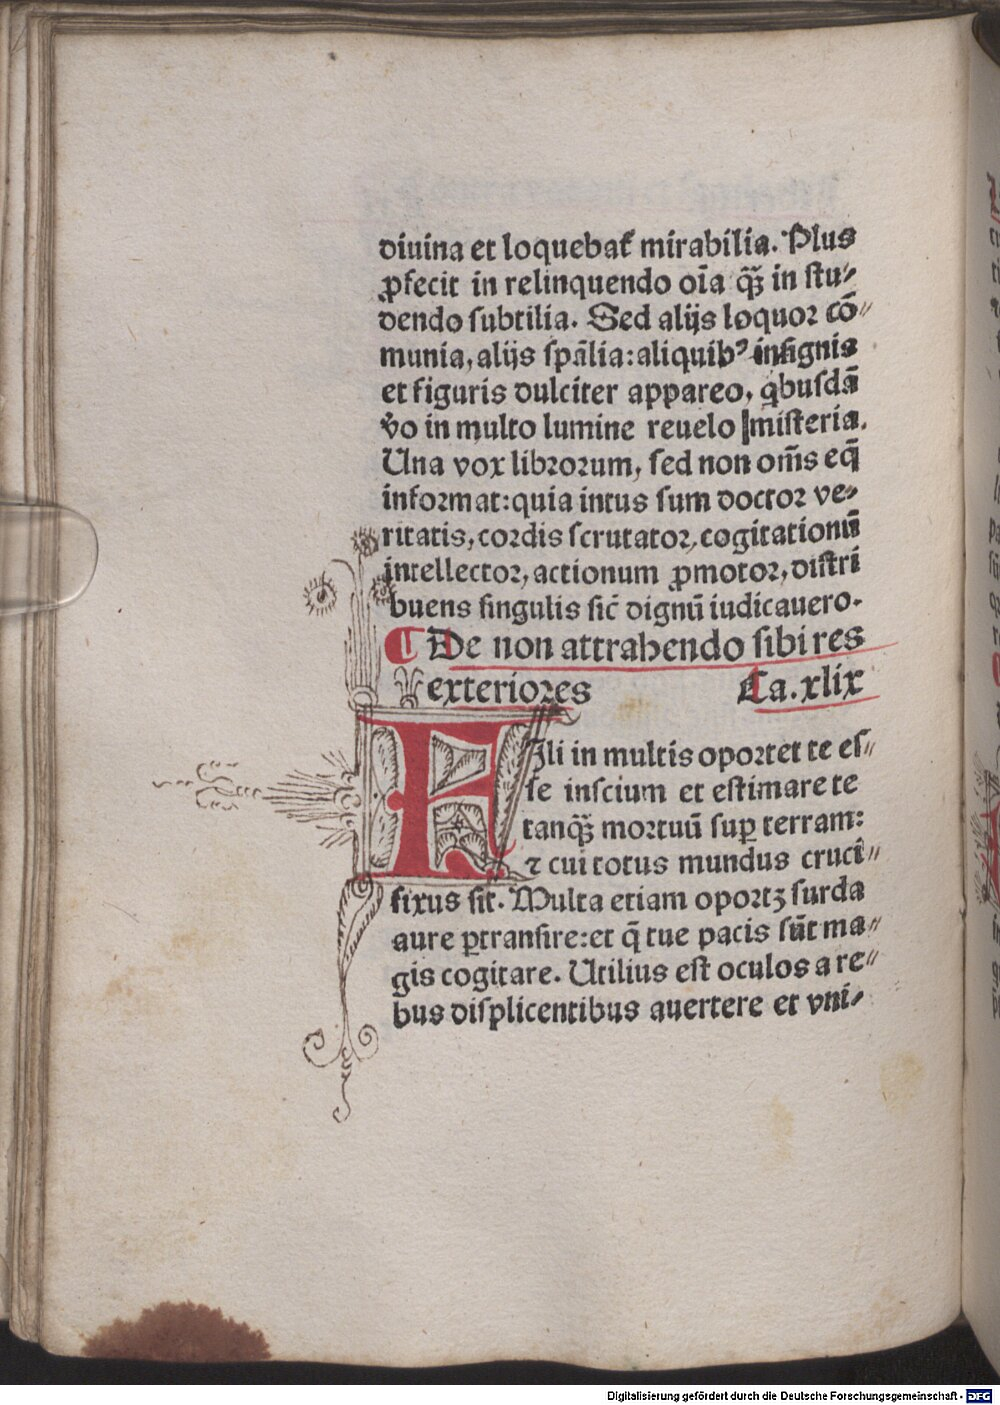 diuina et loquebat᷑ mirabilia. Plus
ꝓfecit in relinquendo oīa qꝫ̄ in ſtu⸗
dendo ſubtilia. Sed alijs loquor cō⸗
munia, alijs ſpālia: aliquibꝰ in ſignis
et figuris dulciter appareo, qͥbuſdā
ѷo in multo lumine reuelo miſteria.
Una vox librorum, ſed non om̄s eq̄
informat: quia intus ſum doctor ve⸗
ritatis, cordis ſcrutator, cogitationū
intellector, actionum ꝓmotor, diſtri
buens ſingulis ſic̄ dignū iudicauero.
¶ De non attrahendo ſibi res
exteriores Ca. xlix
FIli in multis oportet te eſ⸗
ſe inſcium et eſtimare te
tanqꝫ̄ mortuū ſuꝑ terram:
⁊ cui totus mundus cruci⸗
fixus ſit. Multa etiam oportꝫ ſurda
aure ꝑtranſire: et q̄ tue pacis ſūt ma⸗
gis cogitare. Utilius eſt oculos a re⸗
bus diſplicentibus auertere et vni⸗
Digitalisierung gefördert durch die Deutsche Forschungsgemeinschaft - DFG